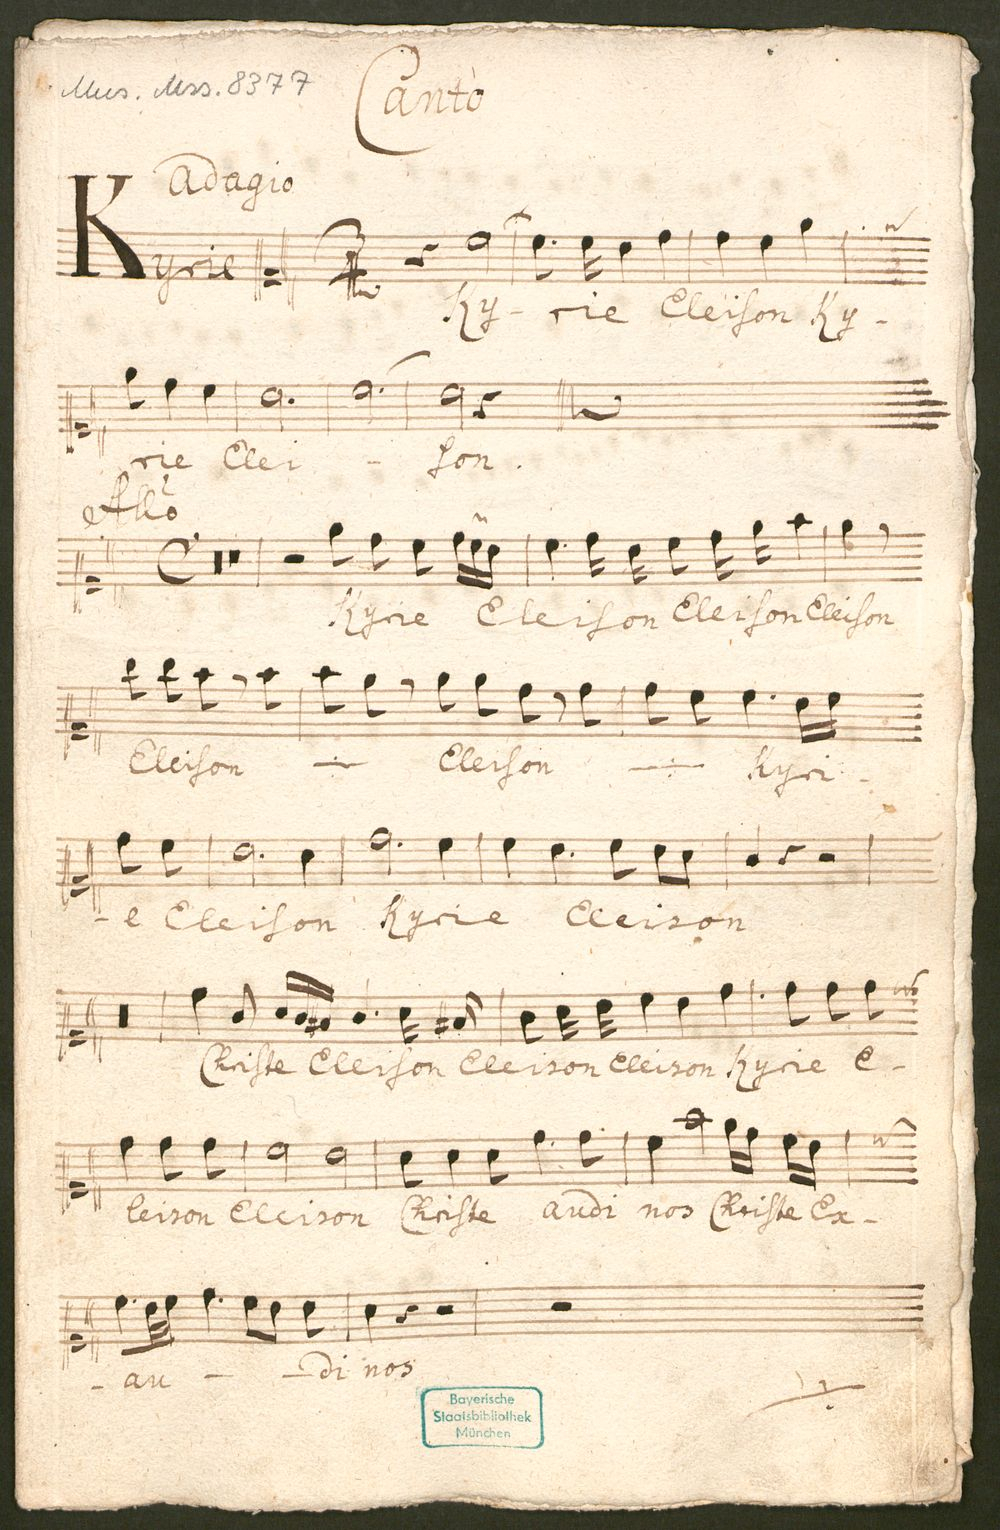 Mus. Mss. 8377
Canto
Adagio
Kyrie
Ky- rie Eleison Ky-
rie Elei - son.
Allo
Kyrie Eleison Eleison Eleison
Eleison — Eleison — Kyri-
-e Eleison Kyrie Eleison
Christe Eleison Eleison Eleison Kyrie E-
leison Eleison Christe audi nos Christe Ex-
- au - - di nos
Bayerische
Staatsbibliothek
München